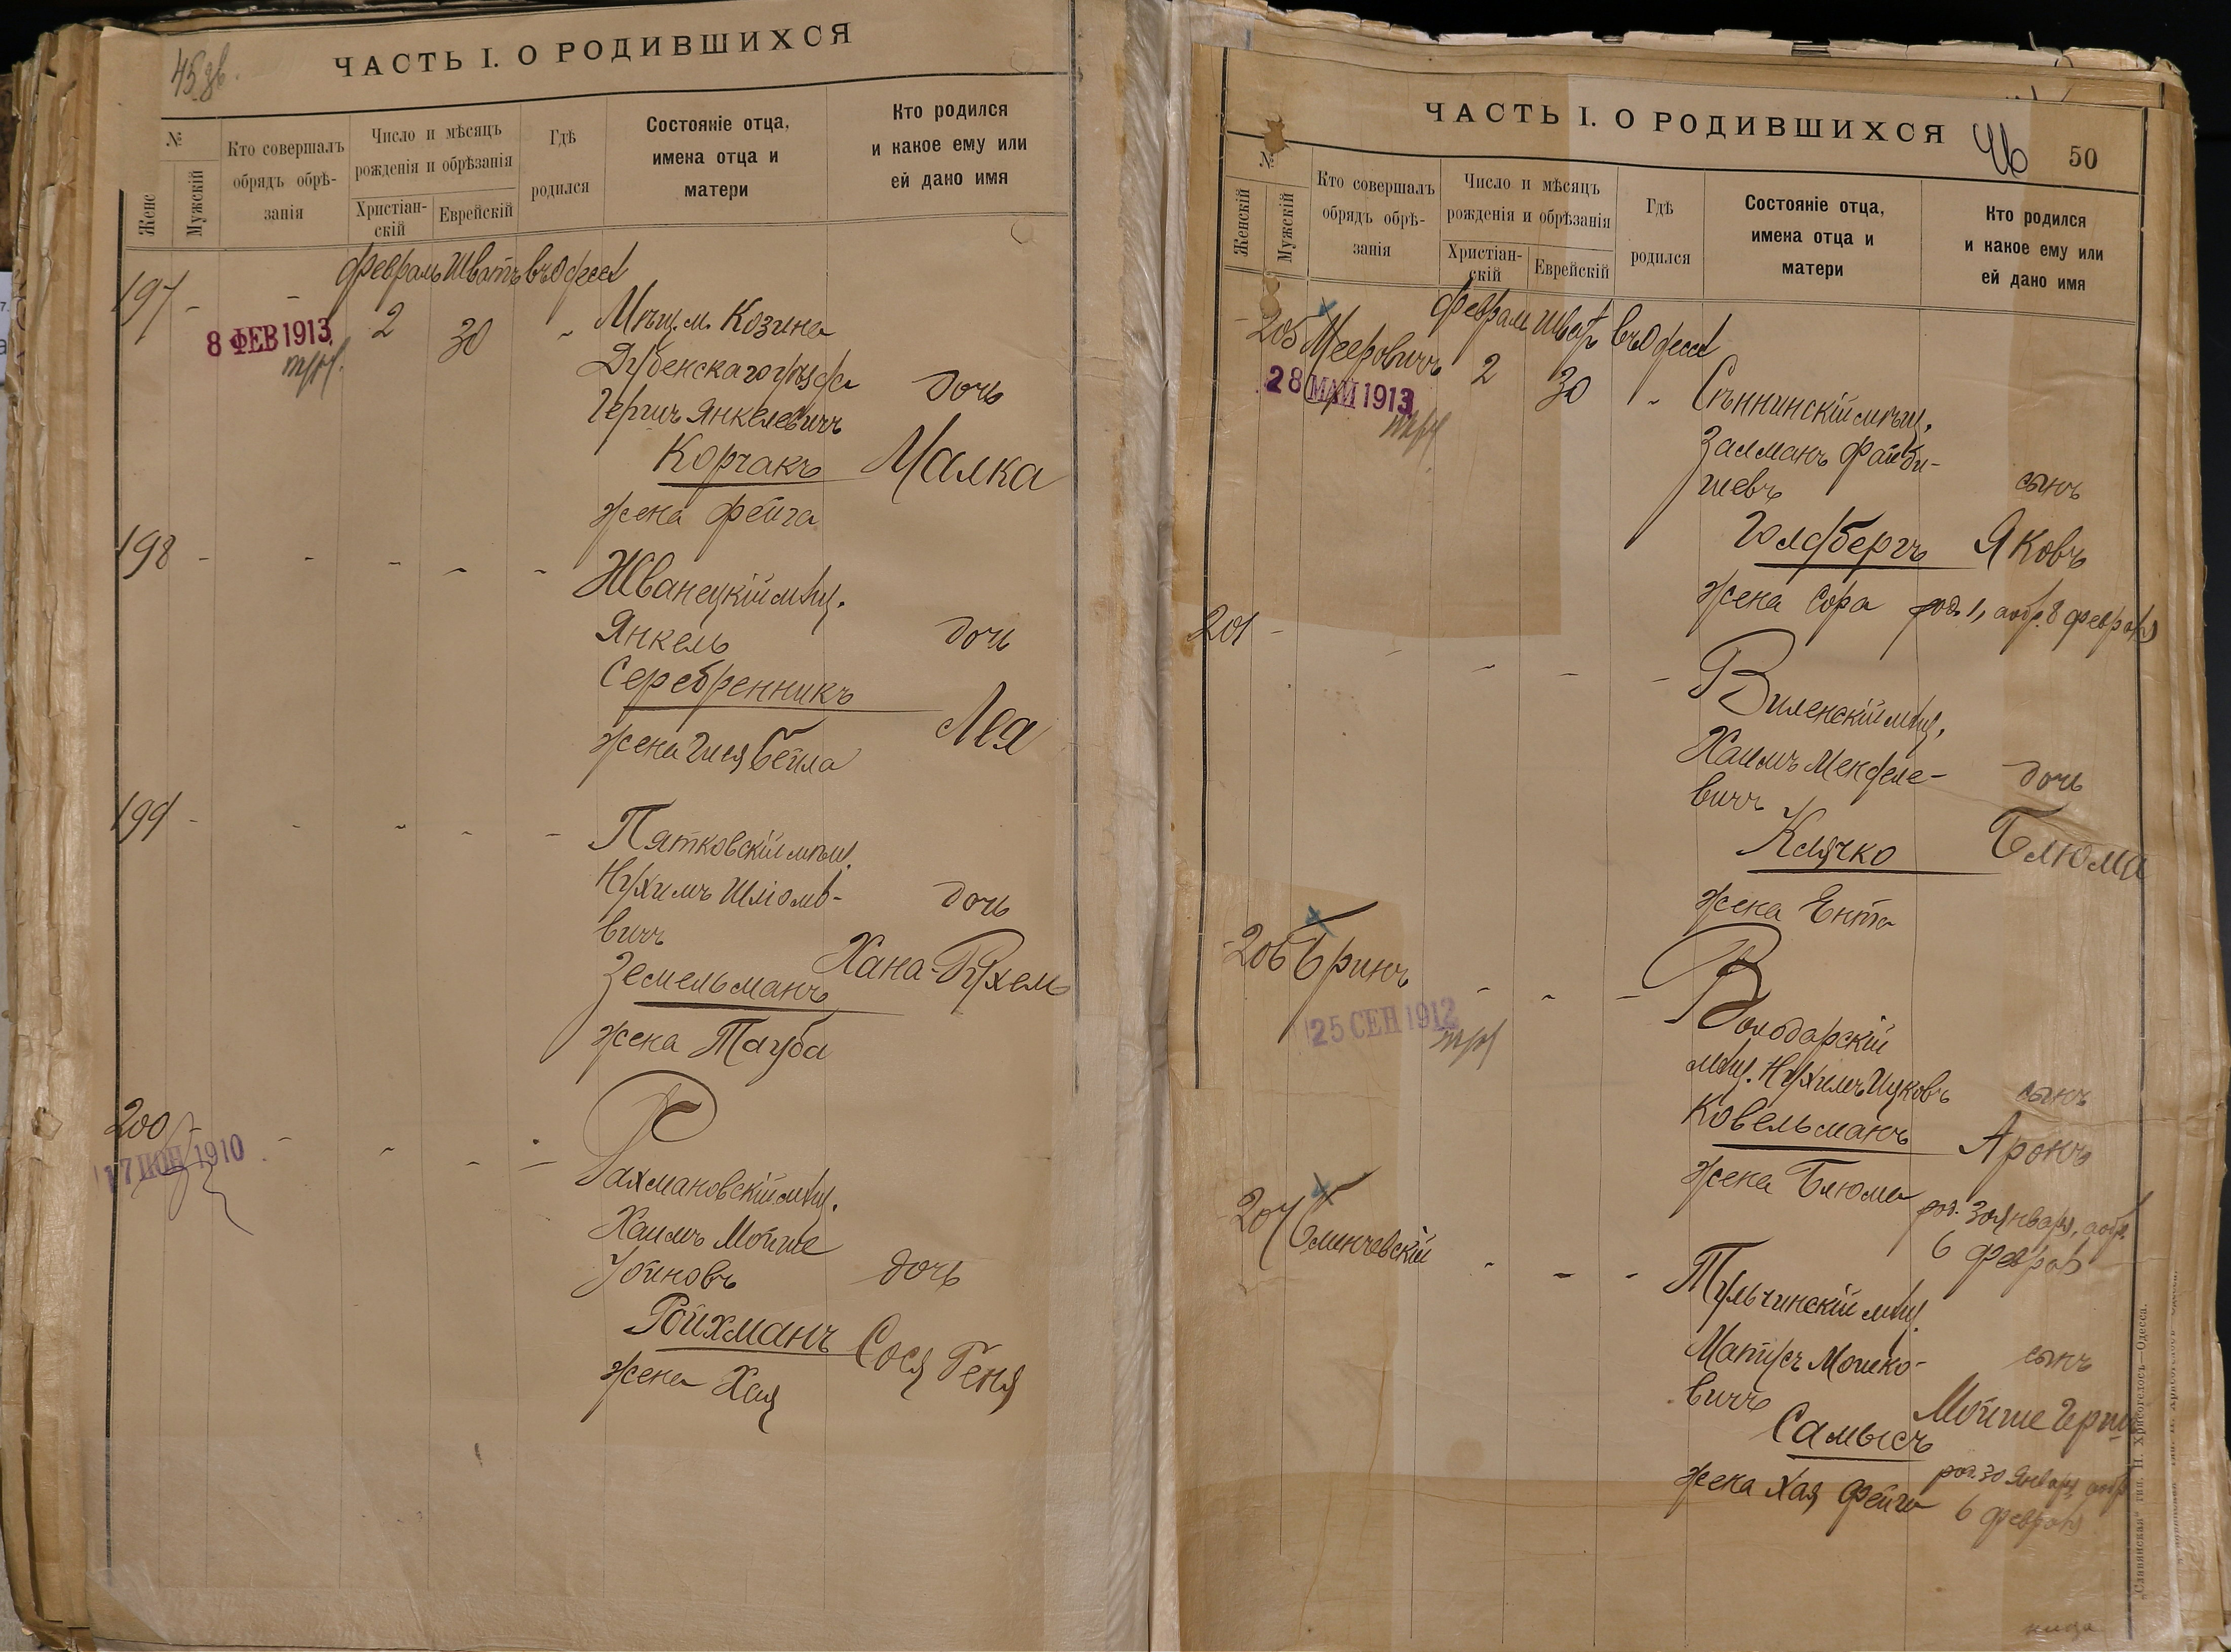 45 зв.
ЧАСТЬ I. О РОДИВШИХСЯ
№
Женс
Мужскій
Кто совершалъ
обрядъ обрѣ-
занія
Число и мѣсяцъ
рожденія и обрѣзанія
Христіан-
скій
Еврейскій
Гдѣ
родился
Состояніе отца,
имена отца и
матери
Кто родился
и какое ему или
ей дано имя
февраль Шватъ въ Одессѣ
197 - - 2 30 "
8 ФЕВ 1913
Мѣщ. м. Козина
Дубенскаго уѣзда
Гершъ Янкелевичъ
Корчакъ
жена Фейга
дочь
Малка
198 - - - - -
Жванецкій мѣщ.
Янкель
Серебренникъ
жена Гися Бейла
дочь
Лея
199 - - - - -
Пятковскій мѣщ.
Нухимъ Шлiомо-
вичъ
Земельманъ
жена Тауба
дочь
Хана-Рухель
200 - - - - -
17 1910
Рахмановскій мѣщ.
Хаимъ Мойше
Ройхманъ
жена Хая
дочь
Сося Геня
ЧАСТЬ I. О РОДИВШИХСЯ
46
50
№
Женскій
Мужскій
Кто совершалъ
обрядъ обрѣ-
занія
Число и мѣсяцъ
рожденія и обрѣзанія
Христіан-
скій
Еврейскій
Гдѣ
родился
Состояніе отца,
имена отца и
матери
Кто родился
и какое ему или
ей дано имя
февраль Шватъ въ Одессѣ
- 205 Мееровичъ 2 30 "
28 МАЙ 1913
Сѣннинскій мѣщ.
Залманъ Файби-
шевъ
Голдбергъ
жена Сора
сынъ
Яковъ
род. 1, а обр. 8 февраля
201 - - - - -
Виленскій мѣщ.
Хаимъ Менделе-
вичъ
Клячко
жена Ента
дочь
Блюма
- 206 Бринъ - - -
25 СЕН 1912
Володарскій
мѣщ. Нухимъ Ицковъ
Ковельманъ
жена Блюма
сынъ
Аронъ
род. 30 января, а обр.
6 февраля
- 207 - - -
Тульчинскій мѣщ.
Матусъ Мошко-
вичъ
Самысъ
жена Хая Фейга
сынъ
Мойше Герш
род. 30 января, а обр.
6 февраля
„Славянская" тип. Н. Хрисогелосъ—Одесса.